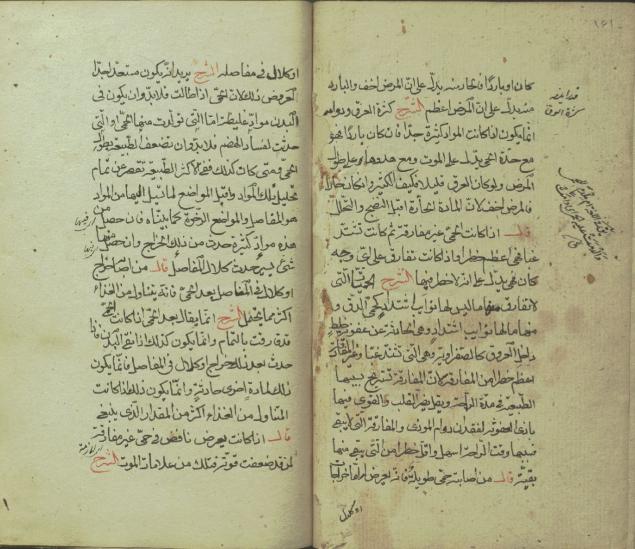 ١٤١
كان او باردا فان الحار منه يدل على ان المرض اخف والبارد
منه يدل على ان المرض اعظم الشرح كثرة العرق ودوامه
انما يكون اذا كانت المواد كثيرة جدا فان كان باردا فهو
مع حدة الحمى يدل على الموت ومع هدوها على طول
المرض ولو كان العرق قليلا فكيف الكثير وان كان حارا
فالمرض اخف لان المادة الحارة اقبل للنضج والتحلل
قال اذا كانت الحمى غير مفارقة ثم كانت تشتد
غبا فهي اعظم خطرا واذا كانت تفارق على اي وجه
كان فهي يدل على انه لا خطر فيها الشرح الحميات التي
لا تفارق منها ما ليس لها نوايب اشتداد كحمى الدق و
منها ما لها نوايب اشتداد وهي الحادثة عن عفونة خلط
داخل العروق كالصفراوية وهي التي تشتد غبا وغير المفارقة
اعظم خطرا من المفارقة لان المفارقة تستريح بسببها
الطبيعة في مدة الراحة
مادة العفونة لفقدان دوام الموذى والمفارقة التي لا يبقى
فيها وقت الراحة اسهل واقل خطرا من التي يبقى منها
بقية قال من اصابته حمى طويلة فانه يعرض له اما خراجات
او كلال
قدر العرق
كثرة العرق
او كلال في مفاصله الشرح يريد انه يكون مستعدا جدا
لعروض ذلك لان الحمى اذا طالت فلا بد وان يكون في
البدن مواد غليظة اما التي تولدت منها الحمى او التي
حدثت لفساد الهضم فلا بد وان تضعف الطبيعة بطول
الحمى ومتى كانت كذلك فهي في الاكثر الطبيعة تقصر عن تمام
تحليل تلك المواد واقبل المواضع لما تميل اليها من المواد
هو المفاصل والمواضع الرخوة كما بيناه فان حصل من
هذه مواد كثيرة حدث من ذلك الخراج وان حصل منها
شئ يسير حدث كلال المفاصل قال من اصابه خراج
او كلال في المفاصل بعد الحمى فانه يتناول من الغذاء
اكثر مما يحتمل الشرح انما يقال بعد الحمى اذا كانت الحمى
قد فارقت بالتمام وانما يكون كذلك اذا نقى البدن فاذا
حدث بعد ذلك خراج او كلال في المفاصل فانما يكون
ذلك لمادة اخرى حادثة وانما يكون ذلك اذا كانت
المتناول من الغذاء اكثر من المقدار الذي ينبغي
قال اذا كانت يعرض نافض في حمى غير مفارقة
لمن قد ضعفت قوته فتلك من علامات الموت الشرح